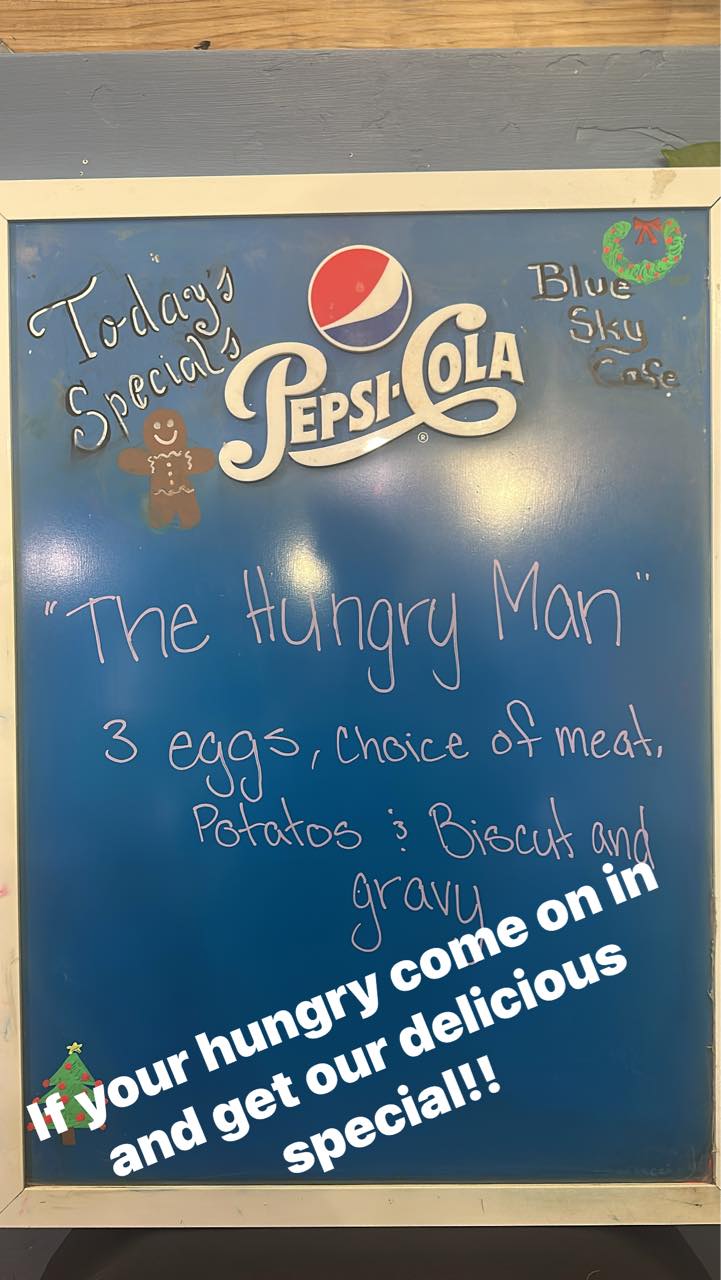 Today's
Special's
Blue
Sky
Cafe
PEPSI-COLA
®
"The Hungry Man"
3 eggs, choice of meat,
Potatos & Biscut and
gravy
If your hungry come on in
and get our delicious
special!!